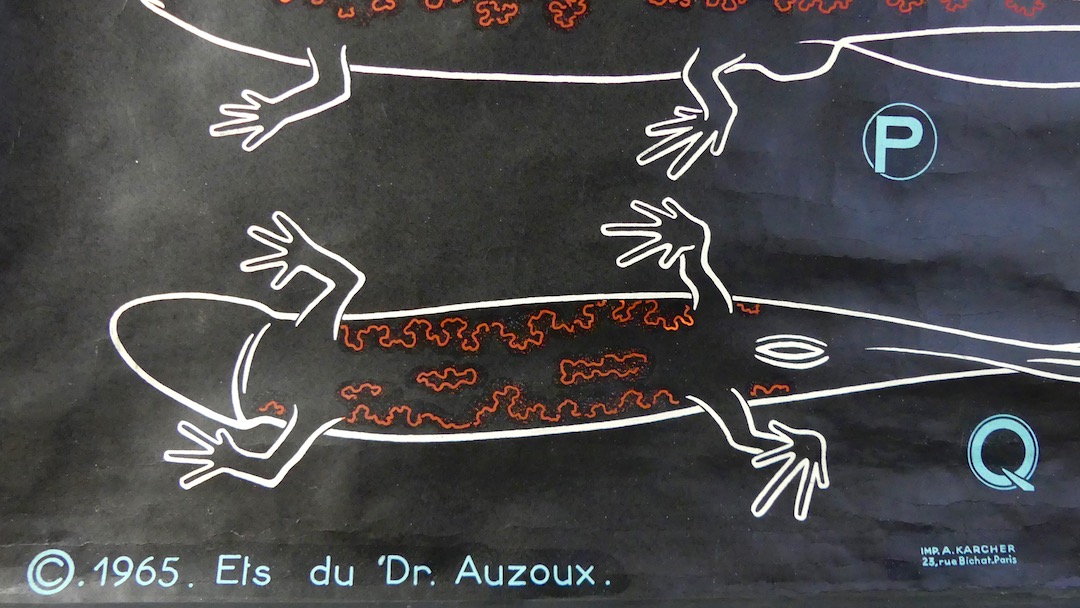 P
Q
©.1965. Ets du 'Dr. Auzoux.
IMP. A. KARCHER
23, rue Bichat.Paris